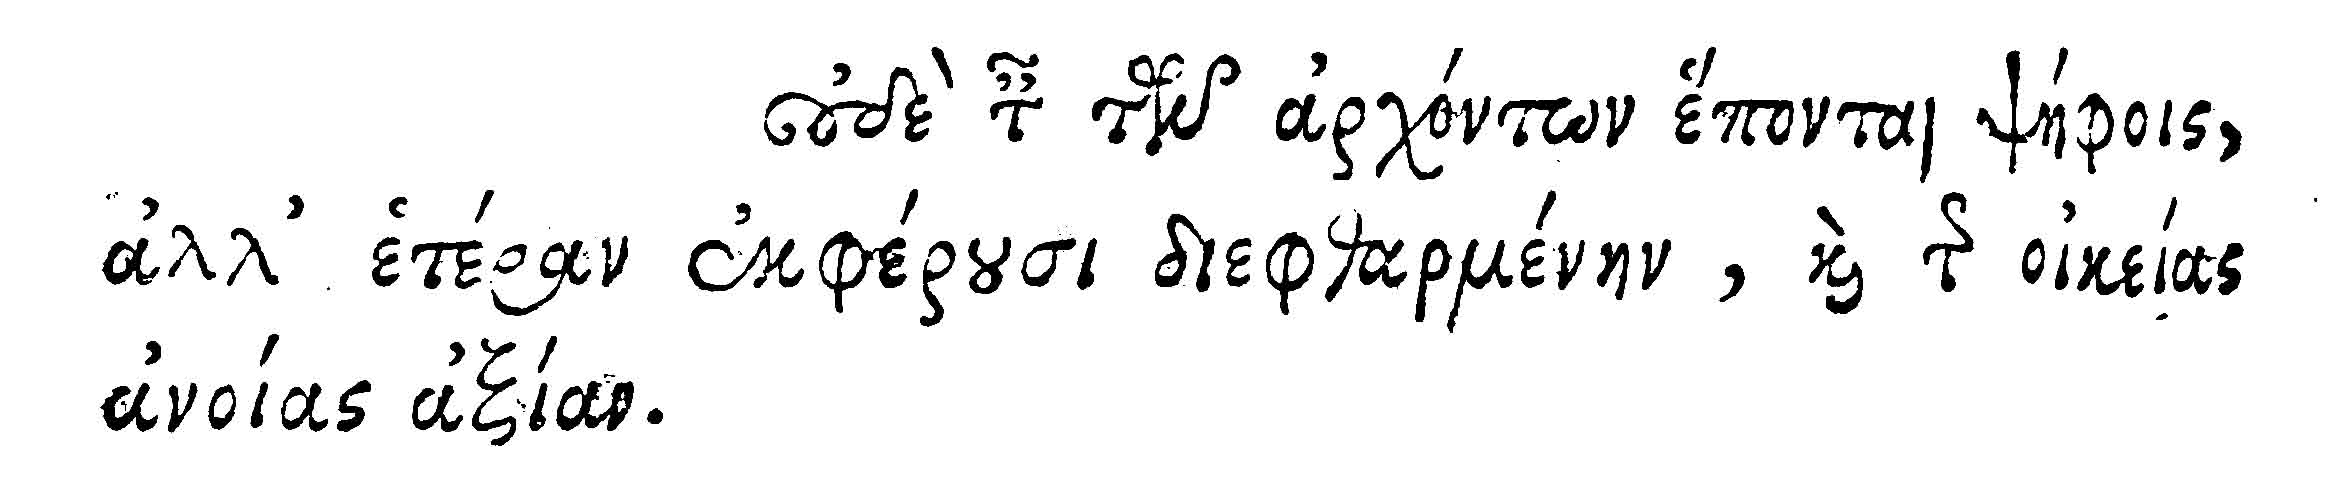 οὐδὲ ταῖς τῶν ἀρχόντων ἕπονται ψήφοις,
ἀλλ’ ἑτέραν ἐκφέρουσι διεφθαρμένην, καὶ τῆς οἰκείας
ἀνοίας ἀξίαν.